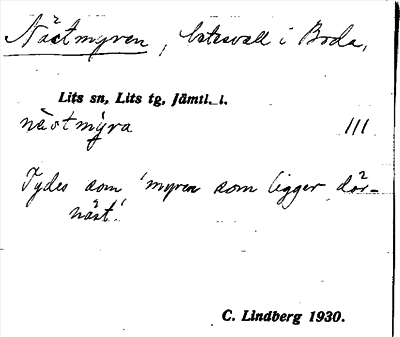 Nästmyren, betesvall i Boda,
Lits sn, Lits tg, Jämtl. l.
nästmyra 111
Tydes som 'myren som ligger där-
näst'.
C. Lindberg 1930.